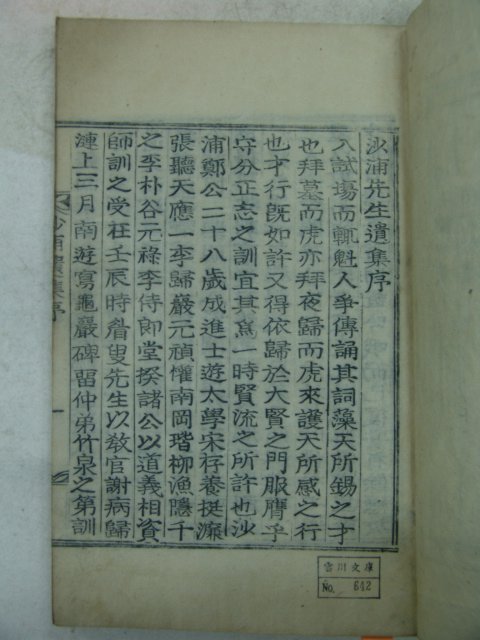 沙浦先生遺集序
入試場而輒魁人爭傳誦其詞藻天所錫之才
也拜墓而虎亦拜夜歸而虎來護天所感之行
也才行旣如許又得依歸於大賢之門服膺乎
守分正志之訓宜其爲一時賢流之所許也沙
浦鄭公二十八歲成進士遊太學宋存養挺濂
張聽天應一李歸巖元禎權南岡瑎柳漁隱千
之李朴谷元祿李侍郞堂揆諸公以道義相資
師訓之受在壬辰時眉叟先生以敎官謝病歸
漣上三月南遊寫龜巖碑留仲弟竹泉之第訓
沙浦遺集序
一
雲川文庫
No. 642